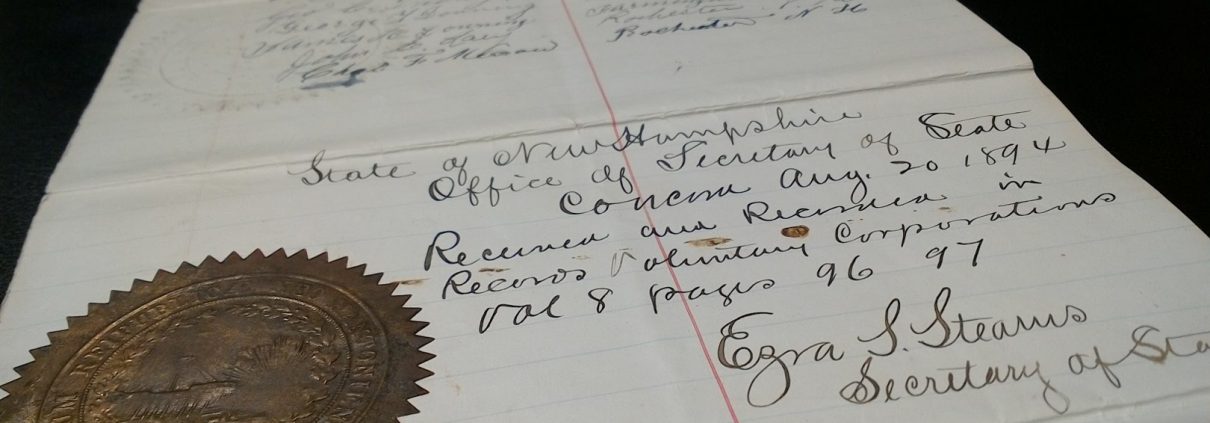 George W. Downing
Rochester
Rochester N H
State of New Hampshire
Office of Secretary of State
Concord Aug. 20 1894
Received and Recorded in
Records Voluntary Corporations
Vol 8 pages 96 97
Ezra S. Stearns
Secretary of Sta